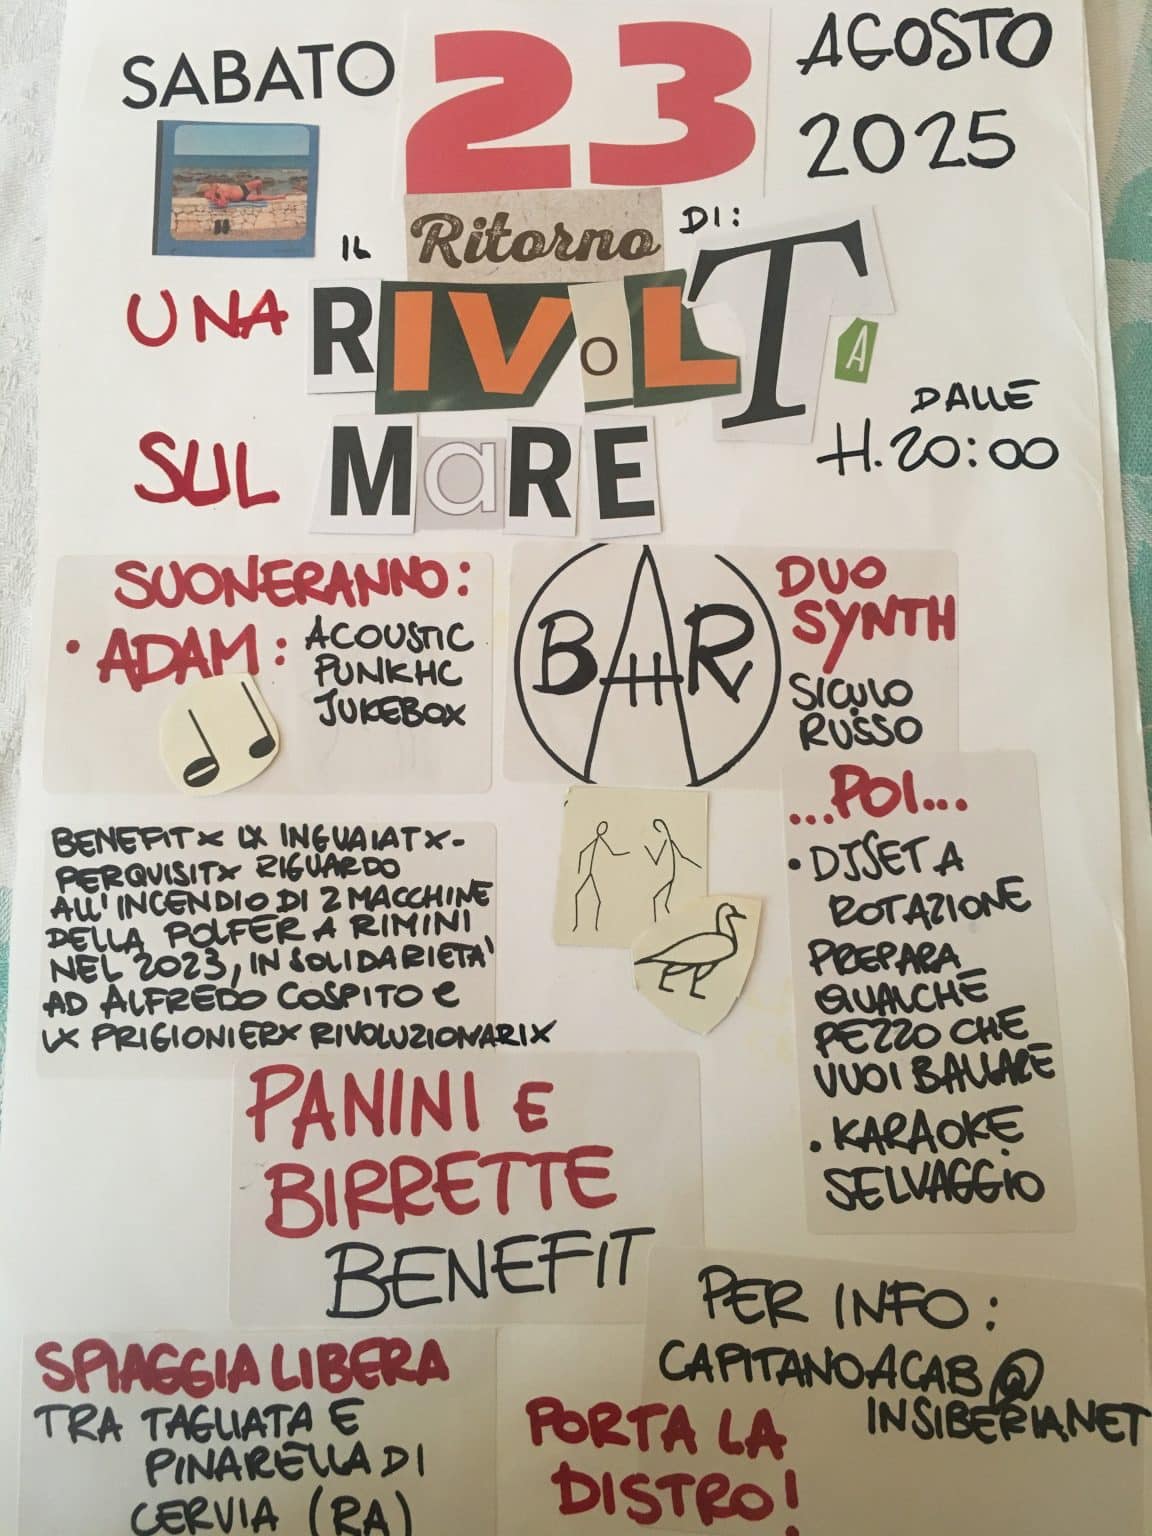 SABATO 23 AGOSTO
2025
IL Ritorno DI:
UNA RIVoLTA
SUL MaRE
DALLE
H. 20:00
SUONERANNO:
• ADAM: ACOUSTIC
PUNKHC
JUKEBOX
BAHR
DUO
SYNTH
SICULO
RUSSO
BENEFIT X LX INGUAIATX-
PERQUISITX RIGUARDO
ALL'INCENDIO DI 2 MACCHINE
DELLA POLFER A RIMINI
NEL 2023, IN SOLIDARIETA'
AD ALFREDO COSPITO e
LX PRIGIONIERX RIVOLUZIONARIX
...POI...
• DJSET A
ROTAZIONE
PREPARA
QUALCHE
PEZZO CHE
VUOI BALLARE
• KARAOKE
SELVAGGIO
PANINI E
BIRRETTE
BENEFIT
PER INFO:
CAPITANOACAB@
INSIBERIA.NET
SPIAGGIA LIBERA
TRA TAGLIATA E
PINARELLA DI
CERVIA (RA)
PORTA LA
DISTRO!